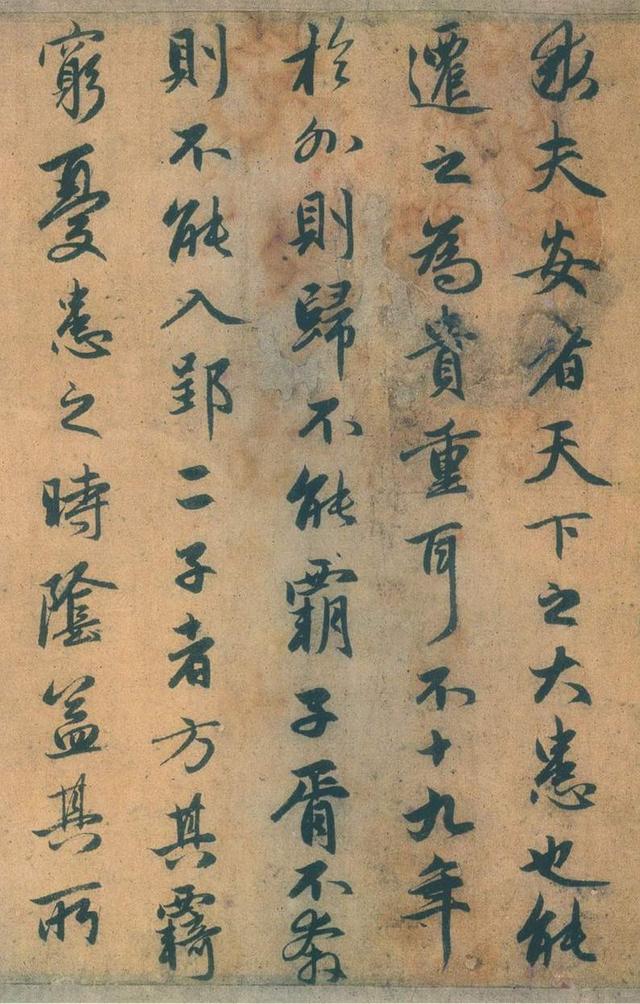 哉夫安者天下之大患也能
遷之為貴重耳不十九年
於外則歸不能覇子胥不奔
則不能入郢二子者方其覉
窮憂患之時陰益其所